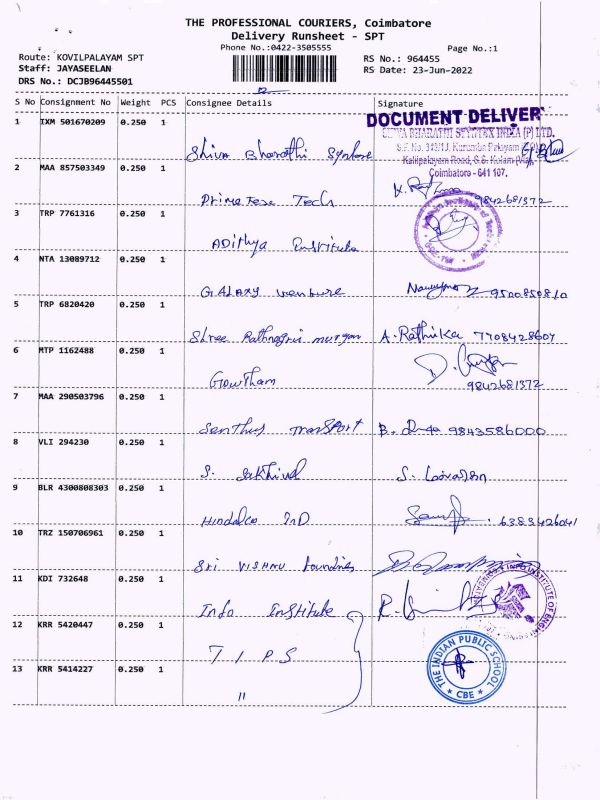 THE PROFESSIONAL COURIERS, Coimbatore
Delivery Runsheet - SPT
Phone No.:0422-3505555
Page No.:1
Route: KOVILPALAYAM SPT
RS No.: 964455
Staff: JAYASEELAN
RS Date: 23-Jun-2022
DRS No.: DCJB96445501
S No Consignment No Weight PCS Consignee Details Signature
DOCUMENT DELIVER
1 IXM 501670209 0.250 1
SHIVA BHARATHI SPYNTEX INDIA (P) LTD.
S.F. No. 313/1J, Kurumba Palayam
Shiva Bharathi
Kalipalayam Road, S.S. Kulam (Via)
2 MAA 857503349 0.250 1
Coimbatore - 641 107.
Tech 9842681372
3 TRP 7761316 0.250 1
Adithya Institute
4 NTA 13089712 0.250 1
GALAXY venture 9500850810
5 TRP 6820420 0.250 1
Shree A. Rathika 7708428607
6 MTP 1162488 0.250 1
Gowtham
9842681372
7 MAA 290503796 0.250 1
Transport B. 9843586000
8 VLI 294230 0.250 1
S. S.
9 BLR 4300808303 0.250 1
Hindalco InD 6383426041
10 TRZ 150706961 0.250 1
Sri VISHNU foundries
11 KDI 732648 0.250 1
Info Institute
12 KRR 5420447 0.250 1
T I P S
THE INDIAN PUBLIC SCHOOL
13 KRR 5414227 0.250 1
CBE
"